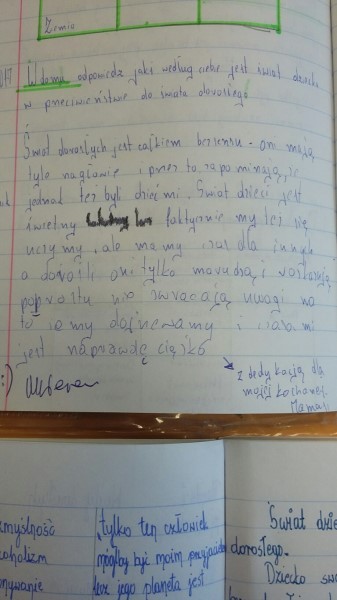 Ziemia
W domu odpowiedz jaki według ciebie jest świat dziecka
w przeciwieństwie do świata dorosłego.
Świat dorosłych jest całkiem bezsensu - oni mają
tyle na głowie i przez to zapominają, że
jednak też byli dziećmi. Świat dzieci jest
świetny faktycznie my też się
uczymy, ale mamy czas dla innych
a dorośli oni tylko marudzą i
poprostu nie zwracają uwagi na
to że my dojrzewamy i czasami
jest naprawdę ciężko
:)
z dedykacją dla
mojej kochanej
Mamusi
"tylko ten człowiek
mógłby być moim przyjacielem
lecz jego planeta jest
Świat dzie
dorosłego.
Dziecko swo